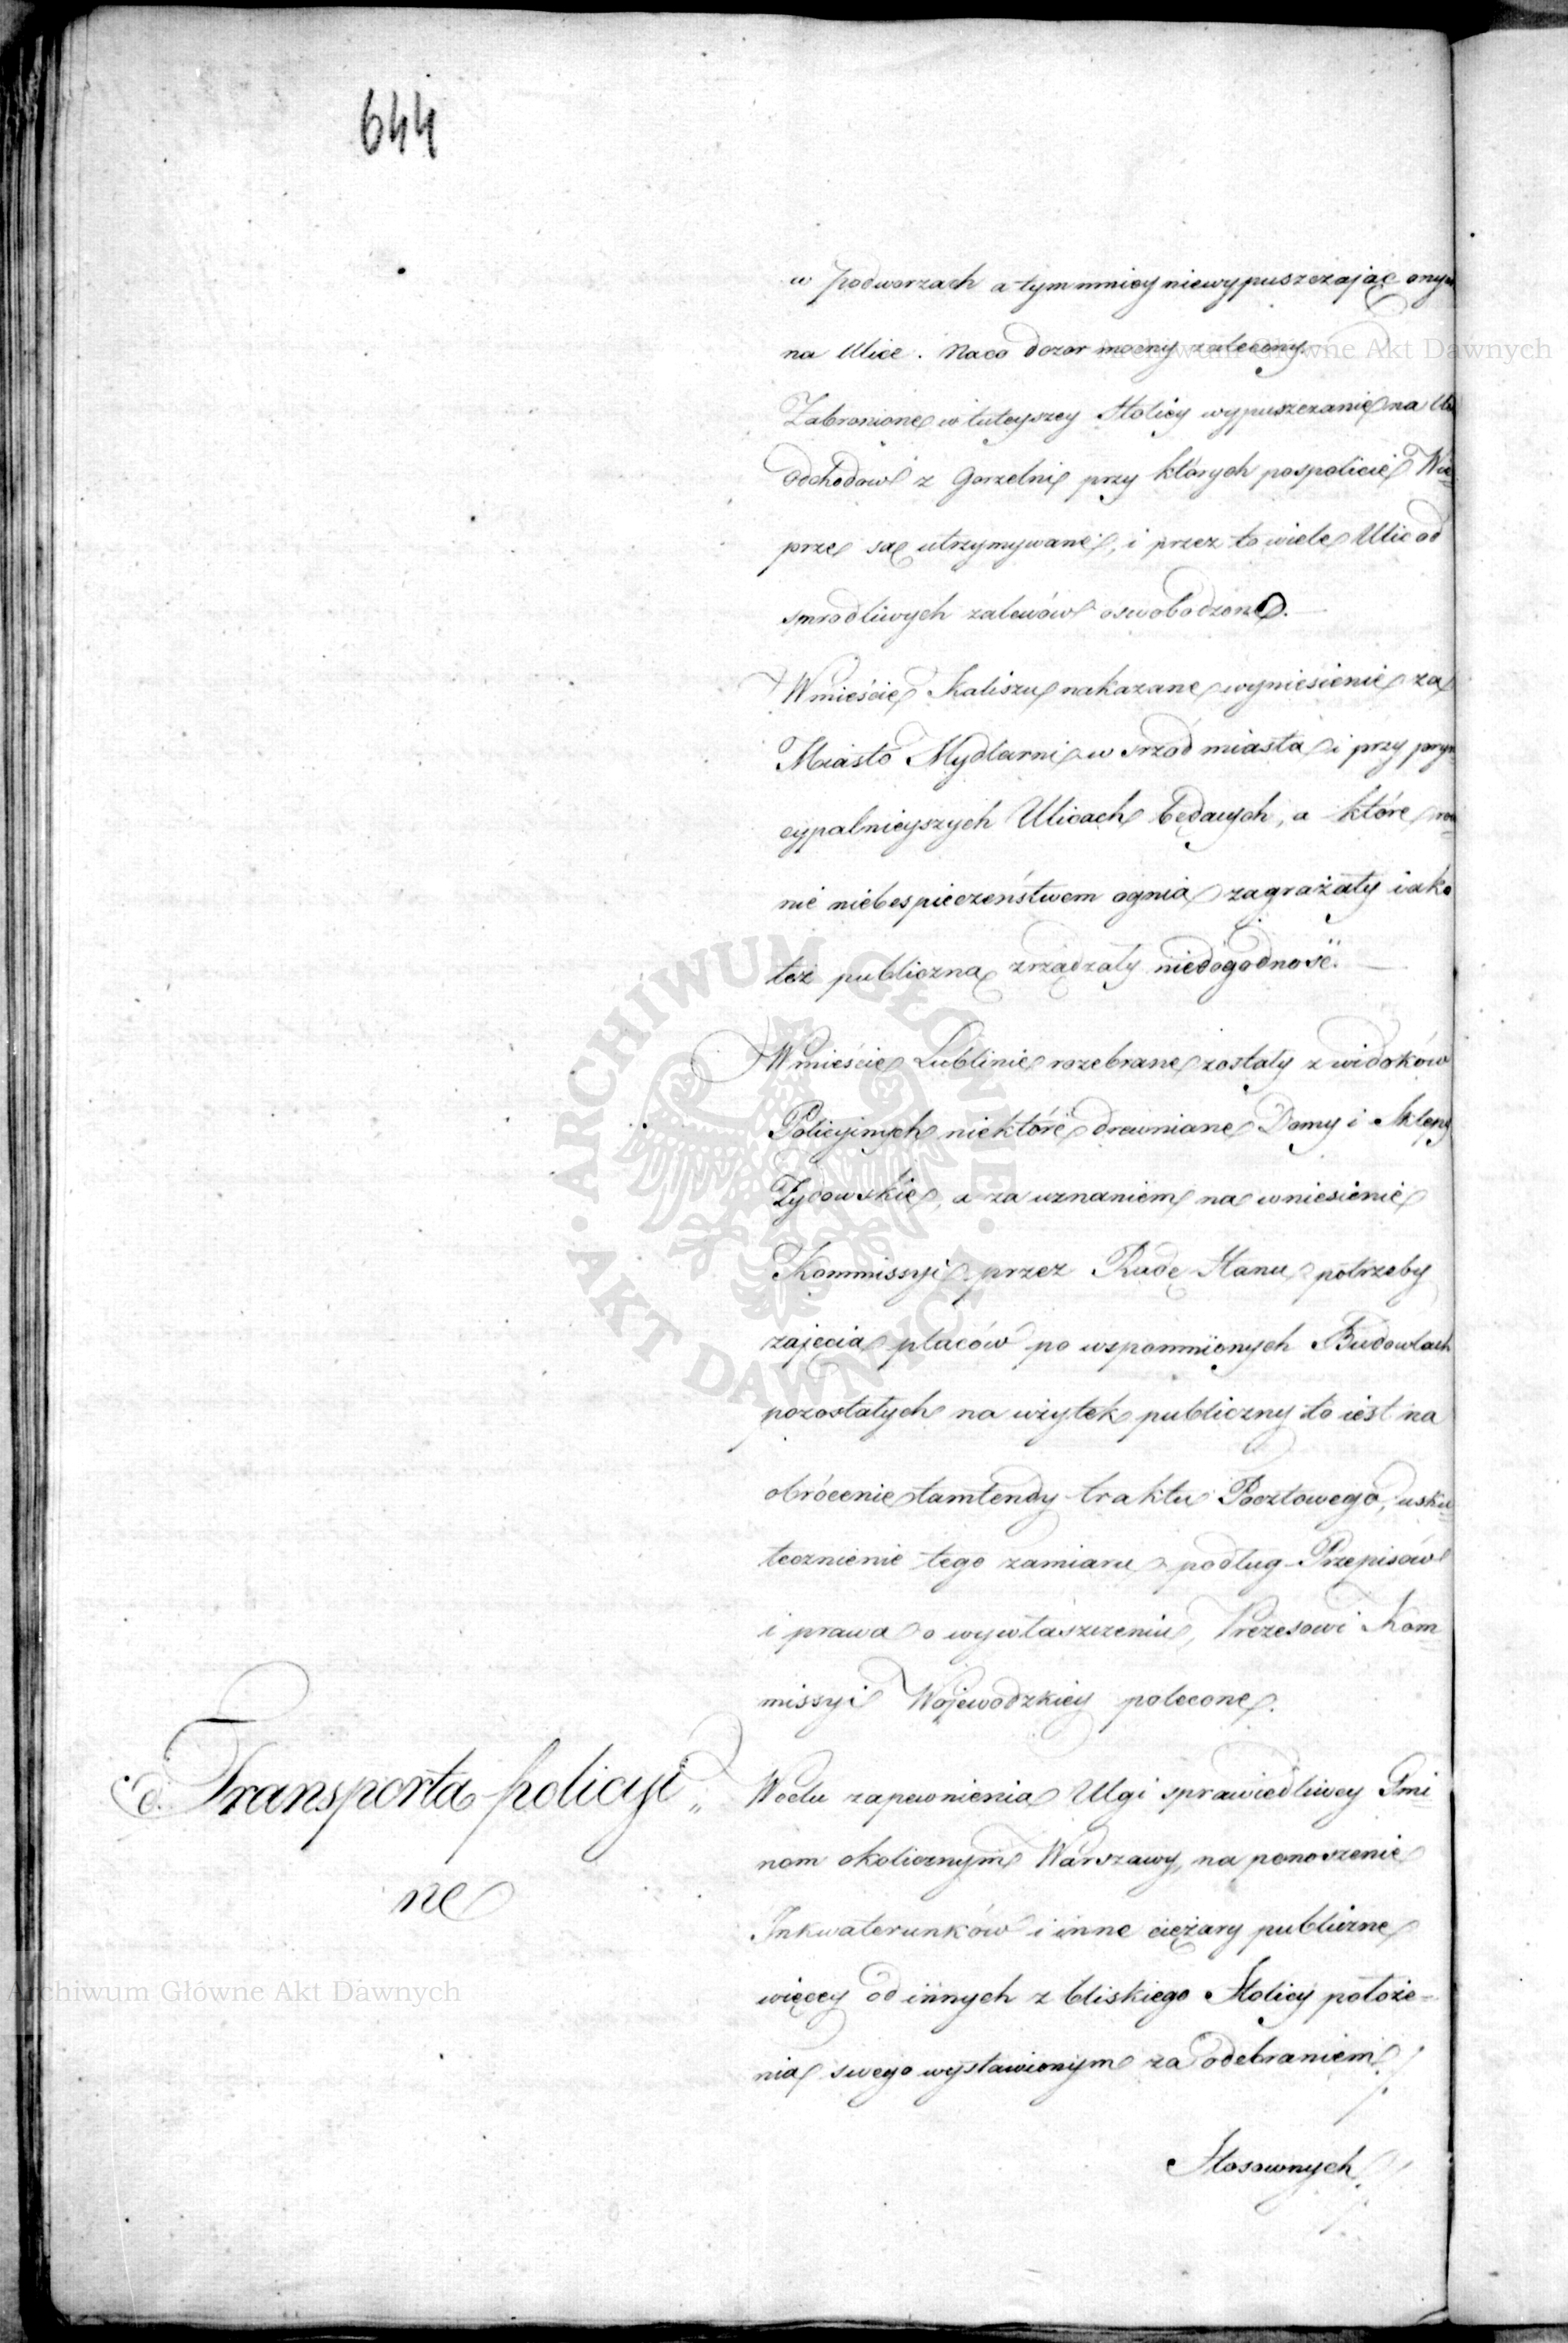 644
w podworzach a tym mniey niewypuszczając onych
na Ulice. Naco dozor mocny zalecony.
Zabronione w tuteyszey Stolicy wypuszczanie na Uli
odchodow z Gorzelni przy których pospolicie Wie=
prze są utrzymywane, i przez to wiele Ulic od
smrodliwych zalewów oswobodzone.
W mieście Kaliszu nakazane wyniesienie za
Miasto Mydlarni w srzod miasta i przy pryn
cypalnieyszych Ulicach będących, a które
nie niebespieczeństwem ognia zagrażały iako
też publiczną zrządzały niedogodność.
W mieście Lublinie rozebrane zostały z widoków
Policyinych niektóre drewniane Domy i Sklepy
Żydowskie, a za uznaniem na wniesienie
Kommissyi przez Radę Stanu potrzeby
zajęcia placów po wspomnionych Budowlach
pozostałych na użytek publiczny to iest na
obrócenie tamtendy traktu Pocztowego, usku=
tecznienie tego zamiaru podług Przepisów
i prawa o wywłaszczeniu, Prezesowi Kom
missyi Wojewodzkiey polecone.
d. Transporta policyi„
ne
W celu zapewnienia Ulgi sprawiedliwey Gmi
nom okolicznym Warszawy, na ponoszenie
Inkwaterunków i inne ciężary publiczne
więcey od innych z bliskiego Stolicy położe=
nia swego wystawionym za odebraniem
Stosownych
Archiwum Główne Akt Dawnych
Archiwum Główne Akt Dawnych
ARCHIWUM GŁÓWNE · AKT DAWNYCH ·